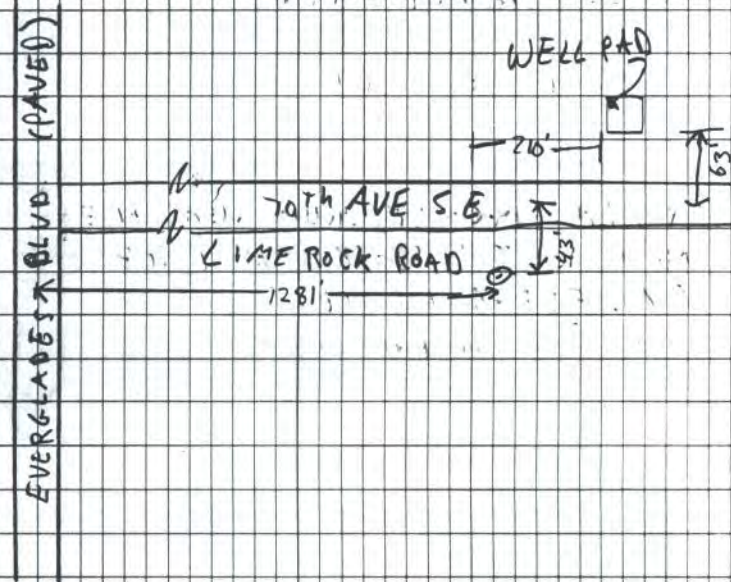 EVERGLADES BLVD (PAVED)
WELL PAD
210'
63'
70TH AVE S.E.
LIME ROCK ROAD
43'
1281'